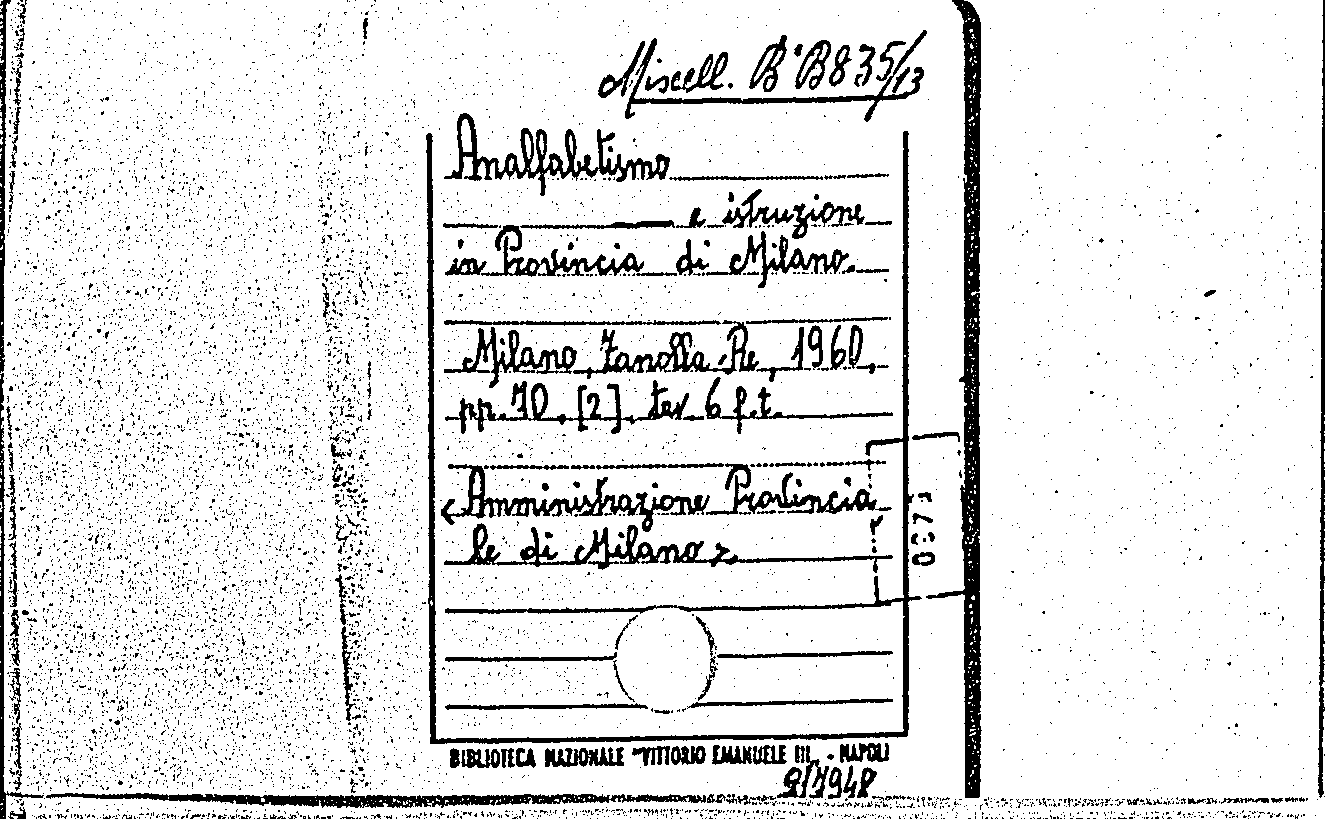 Miscell. B B835/13
Analfabetismo
e istruzione
in Provincia di Milano.
Milano, Zanolla-Re, 1960,
pp. 70, [2]. tav 6 f.t.
<Amministrazione Provincia
le di Milano>
0371
BIBLIOTECA NAZIONALE "VITTORIO EMANUELE III„ - NAPOLI